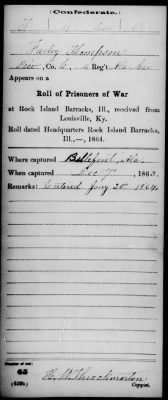 Confederate.
Farley Thompson
Co. C, Reg't, Ala. Cav
Appears on a
Roll of Prisoners of War
at Rock Island Barracks, Ill., received from
Louisville, Ky.
Roll dated Headquarters Rock Island Barracks,
Ill.,—, 1864.
Where captured Bellefont, Ala.
When captured Dec 7, 1863.
Remarks: Entered Jany 20, 1864
Number of roll:
65
(639b)
Copyist.